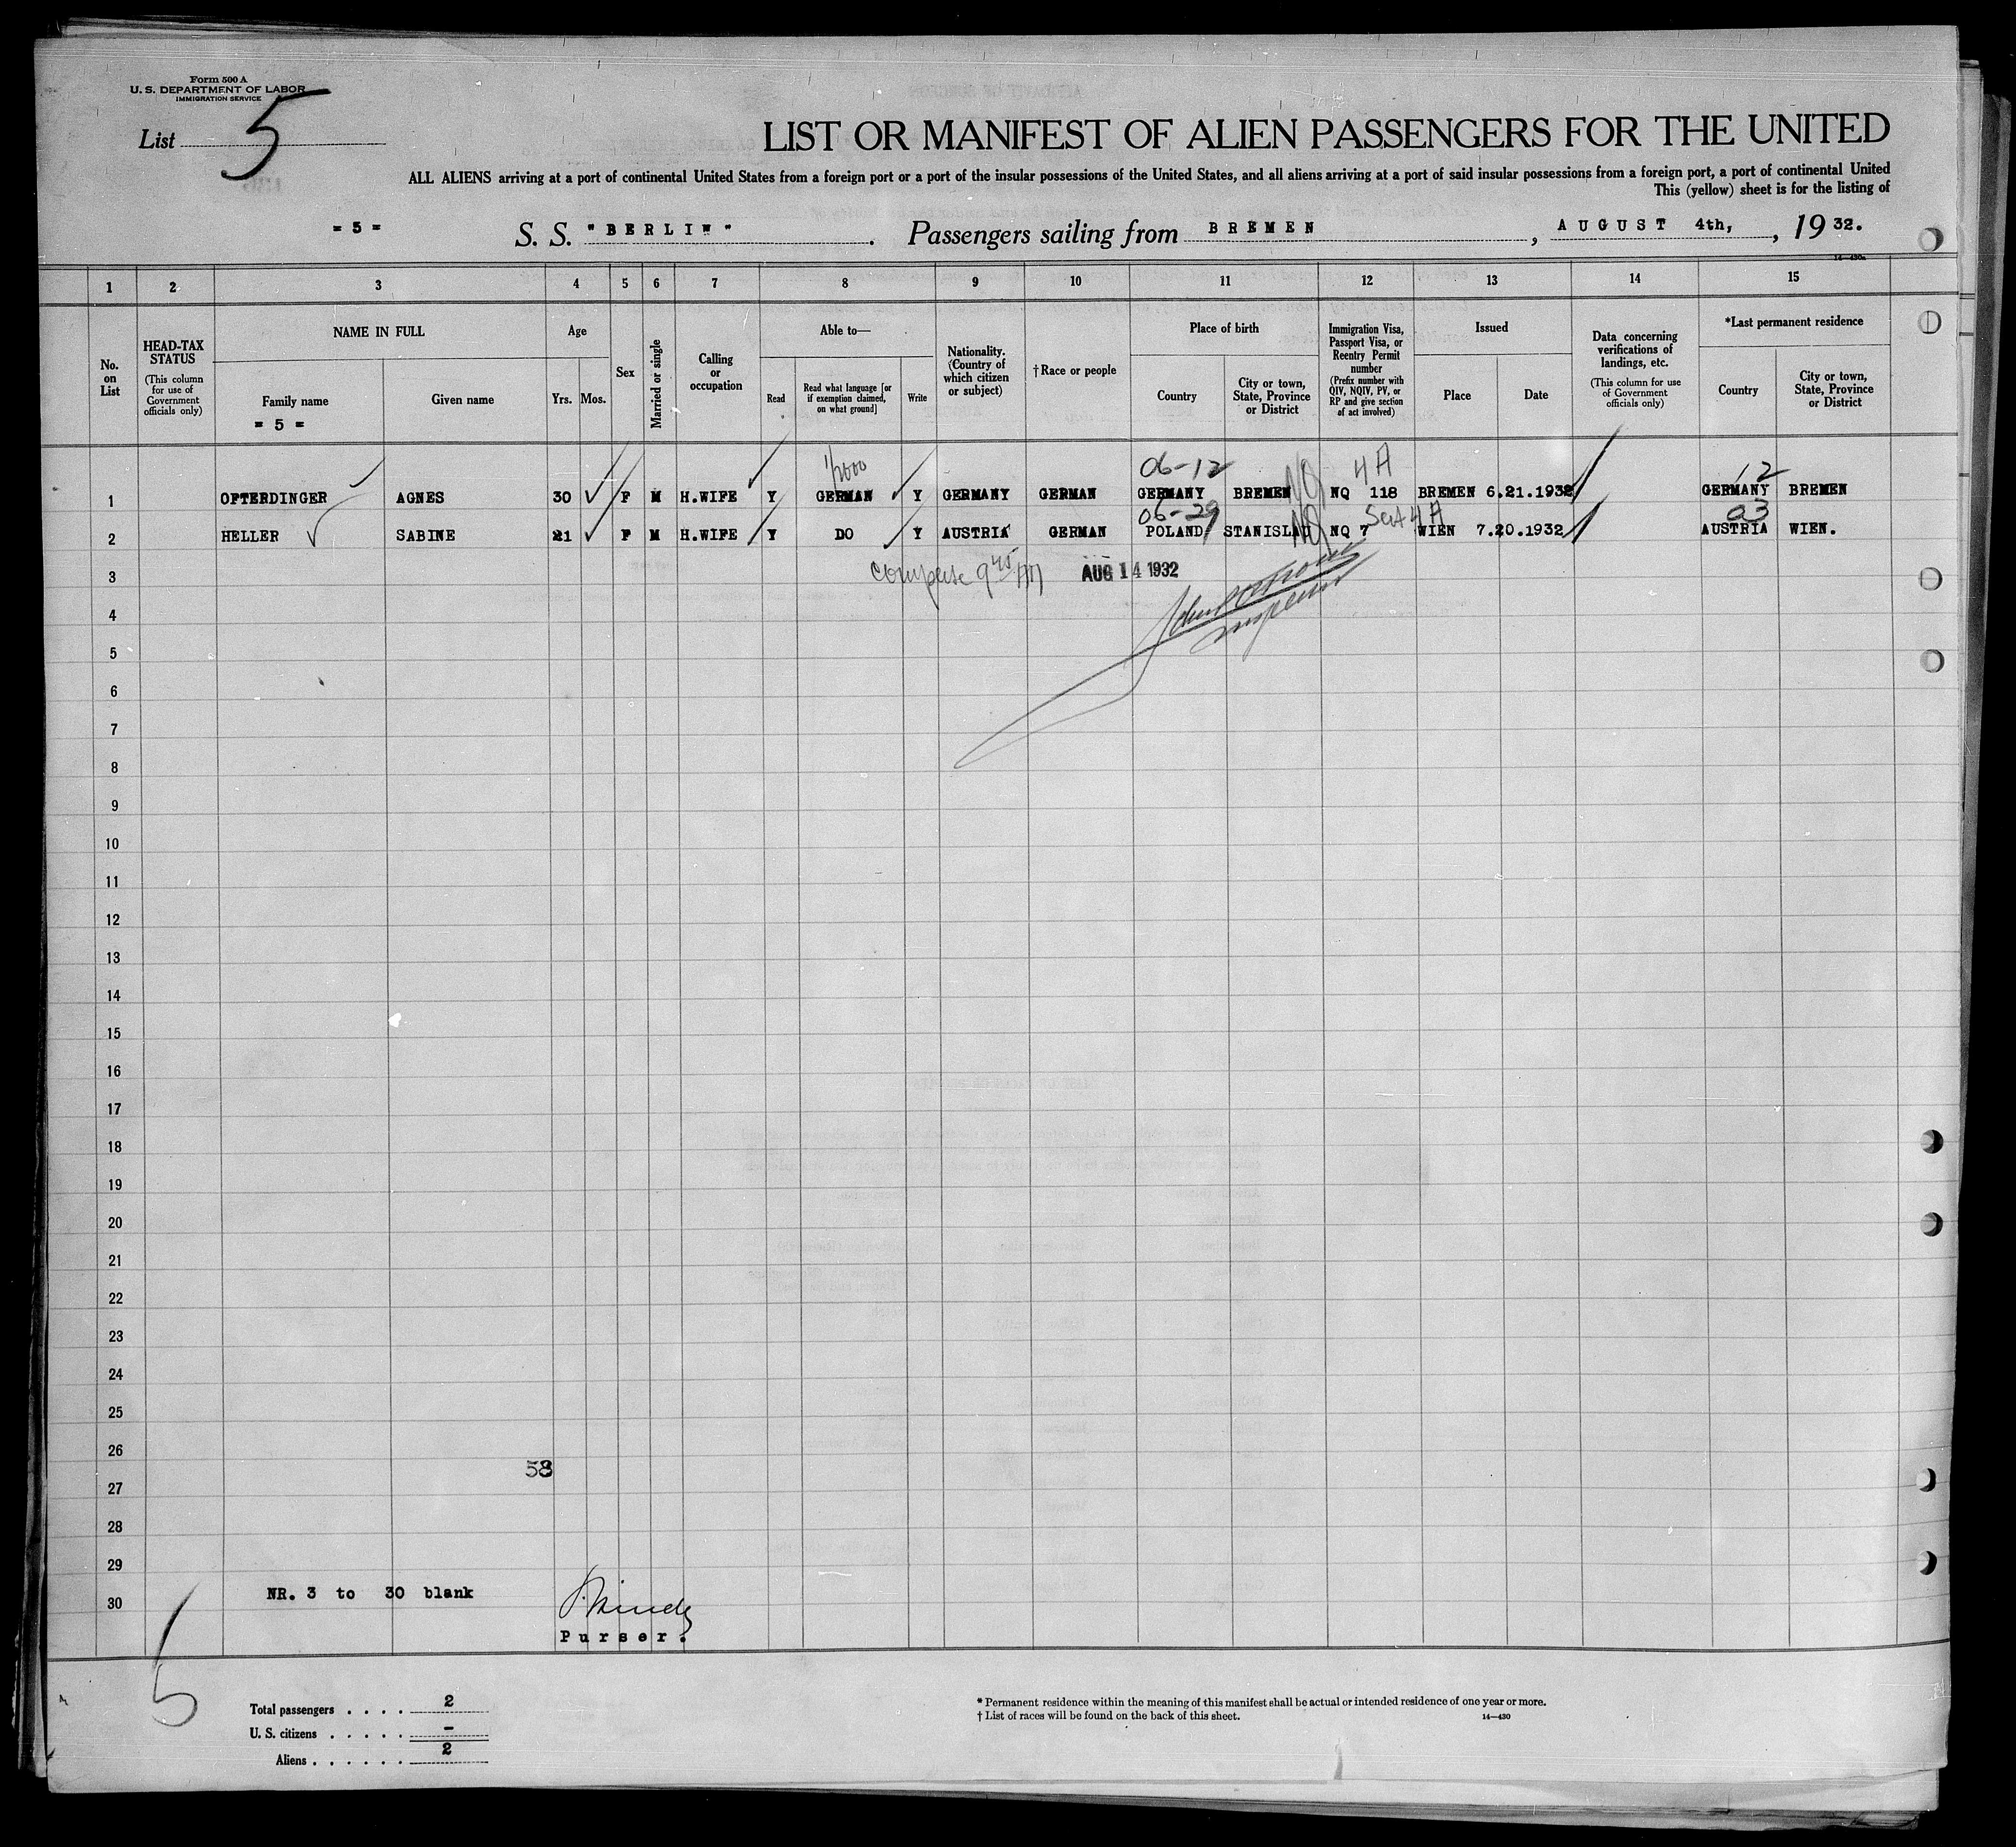 Form 500 A
U. S. DEPARTMENT OF LABOR
IMMIGRATION SERVICE
List 5
LIST OR MANIFEST OF ALIEN PASSENGERS FOR THE UNITED
ALL ALIENS arriving at a port of continental United States from a foreign port or a port of the insular possessions of the United States, and all aliens arriving at a port of said insular possessions from a foreign port, a port of continental United
This (yellow) sheet is for the listing of
= 5 = S. S. "BERLIN". Passengers sailing from BREMEN, AUGUST 4th, , 19 32.
14—430a
1 2 3 4 5 6 7 8 9 10 11 12 13 14 15
No. on List
HEAD-TAX STATUS
(This column for use of Government officials only)
NAME IN FULL
Family name
= 5 =
Given name
Age
Yrs. Mos.
Sex
Married or single
Calling or occupation
Able to—
Read
Read what language [or if exemption claimed, on what ground]
Write
Nationality. (Country of which citizen or subject)
†Race or people
Place of birth
Country
City or town, State, Province or District
Immigration Visa, Passport Visa, or Reentry Permit number
(Prefix number with QIV, NQIV, PV, or RP and give section of act involved)
Issued
Place
Date
Data concerning verifications of landings, etc.
(This column for use of Government officials only)
*Last permanent residence
Country
City or town, State, Province or District
06-12 NQ 4 A 12
1 OFTERDINGER AGNES 30 F M H.WIFE Y GERMAN Y GERMANY GERMAN GERMANY BREMEN NQ 118 BREMEN 6.21.1932 GERMANY BREMEN
06-29 NQ 4 A 03
2 HELLER SABINE 21 F M H.WIFE Y DO Y AUSTRIA GERMAN POLAND STANISLAU NQ 7 WIEN 7.20.1932 AUSTRIA WIEN.
3 9 45 AM AUG 14 1932
4
5
6
7
8
9
10
11
12
13
14
15
16
17
18
19
20
21
22
23
24
25
26
58
27
28
29
30 NR. 3 to 30 blank
Purser.
5
Total passengers . . . . 2
U. S. citizens . . . . . –
Aliens . . . . . . 2
* Permanent residence within the meaning of this manifest shall be actual or intended residence of one year or more.
† List of races will be found on the back of this sheet. 14—430